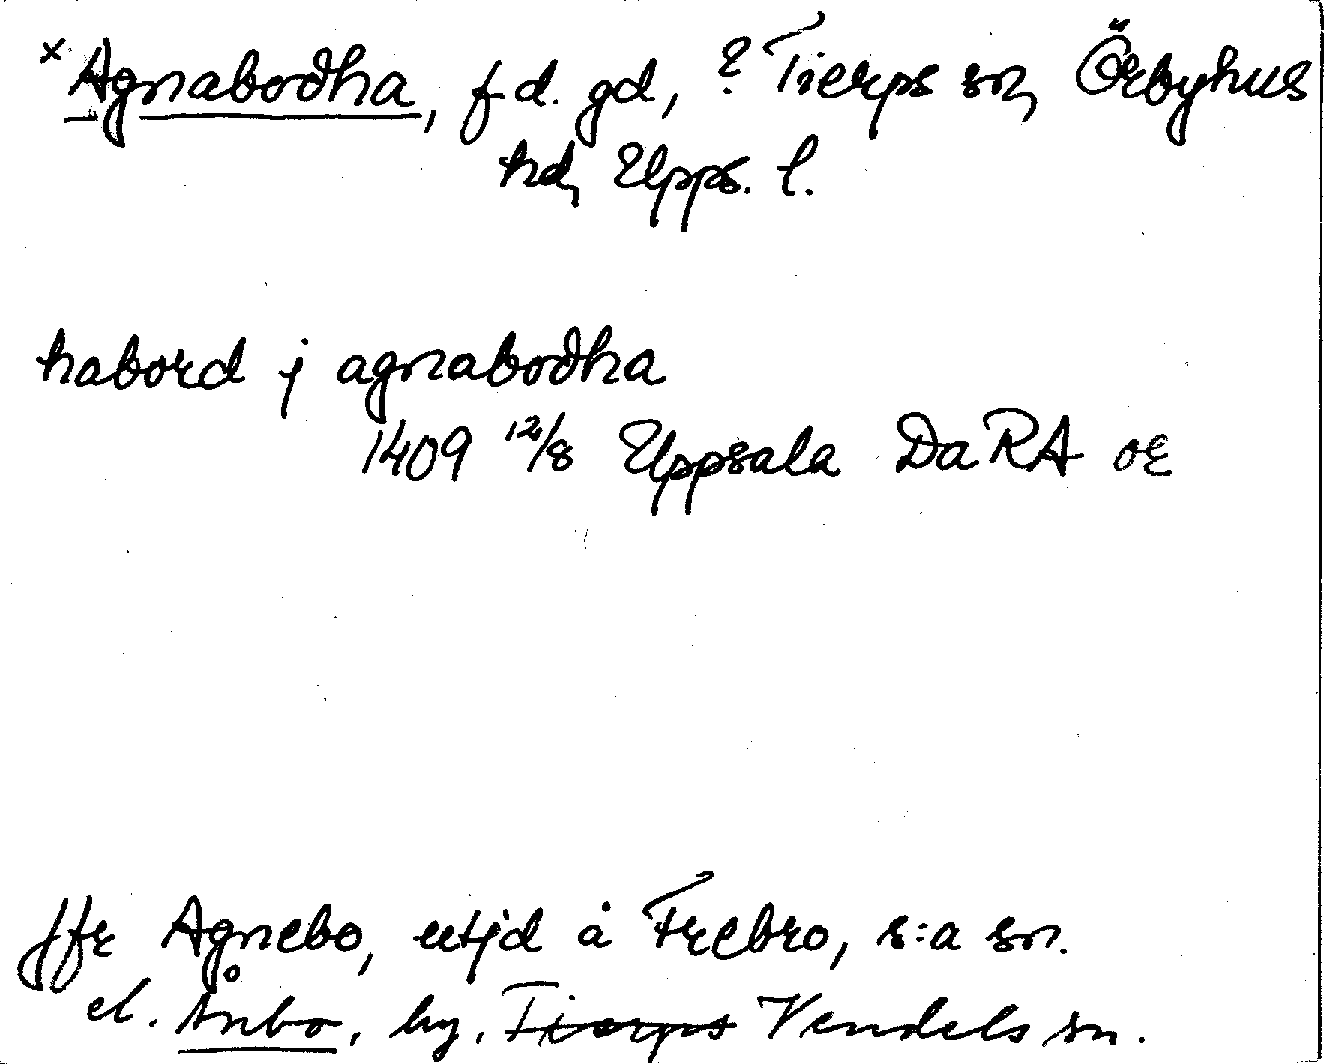 ×Agnabodha, f d. gd, ? Tierps sn, Örbyhus
hd, Upps. l.
habord j agnabodha
1409 12/8 Uppsala DaRA or
Jfr Agnebo, utjd å Frebro, s:a sn.
el. Ånbo, by, Tierps Vendels sn.